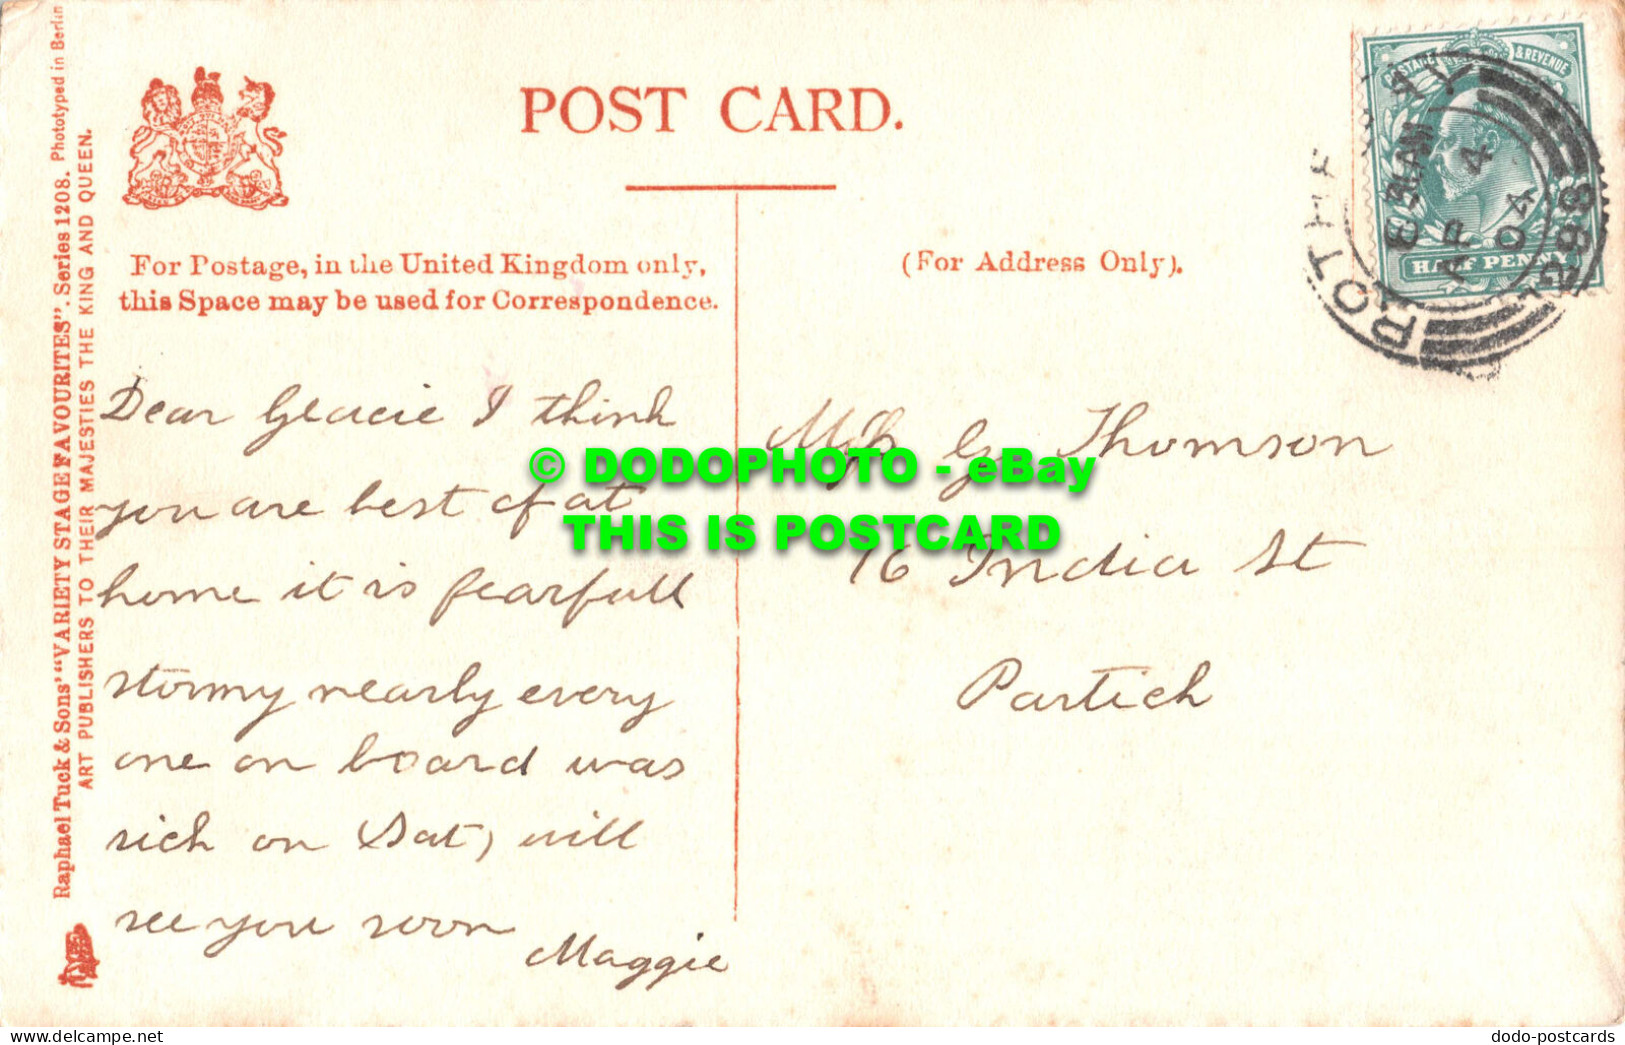 Raphael Tuck & Sons' "VARIETY STAGE FAVOURITES". Series 1208. Phototyped in Berlin
ART PUBLISHERS TO THEIR MAJESTIES THE KING AND QUEEN.
POST CARD.
For Postage, in the United Kingdom only,
this Space may be used for Correspondence.
(For Address Only).
POSTAGE & REVENUE
HALF PENNY
ROTHE
AP 4
04
298
Dear Gracie I think
you are best of at
home it is fearfull
stormy nearly every
one on board was
sick on Sat, will
see you soon
Maggie
Miss G Thomson
16 India St
Partick
© DODOPHOTO - eBay
THIS IS POSTCARD
www.delcampe.net
dodo-postcards